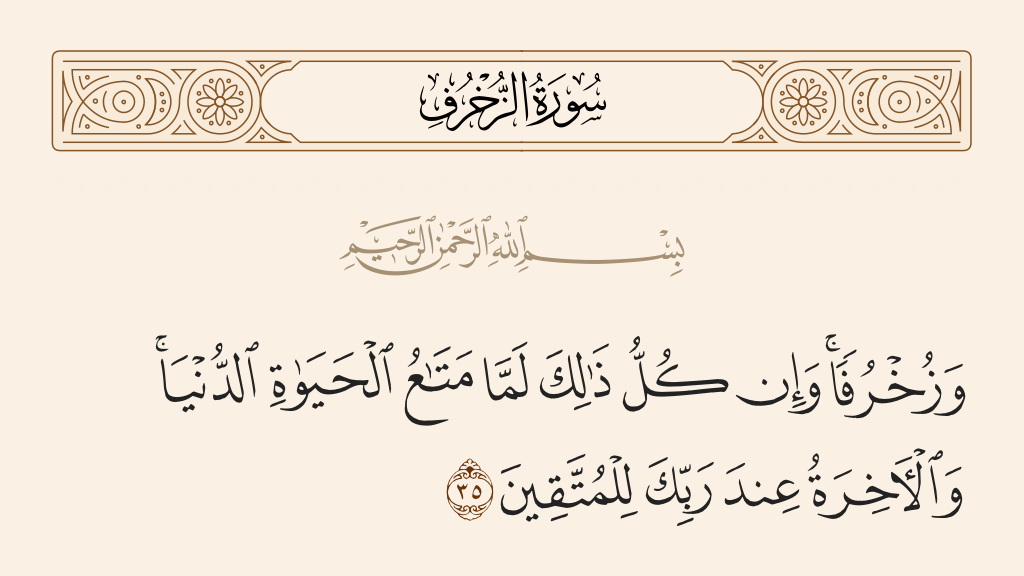 سُورَةُ الزُّخْرُفِ
بِسْمِ ٱللَّهِ ٱلرَّحْمَٰنِ ٱلرَّحِيمِ
وَزُخْرُفًاۚ وَإِن كُلُّ ذَٰلِكَ لَمَّا مَتَٰعُ ٱلْحَيَوٰةِ ٱلدُّنْيَاۚ
وَٱلْـَٔاخِرَةُ عِندَ رَبِّكَ لِلْمُتَّقِينَ ٣٥